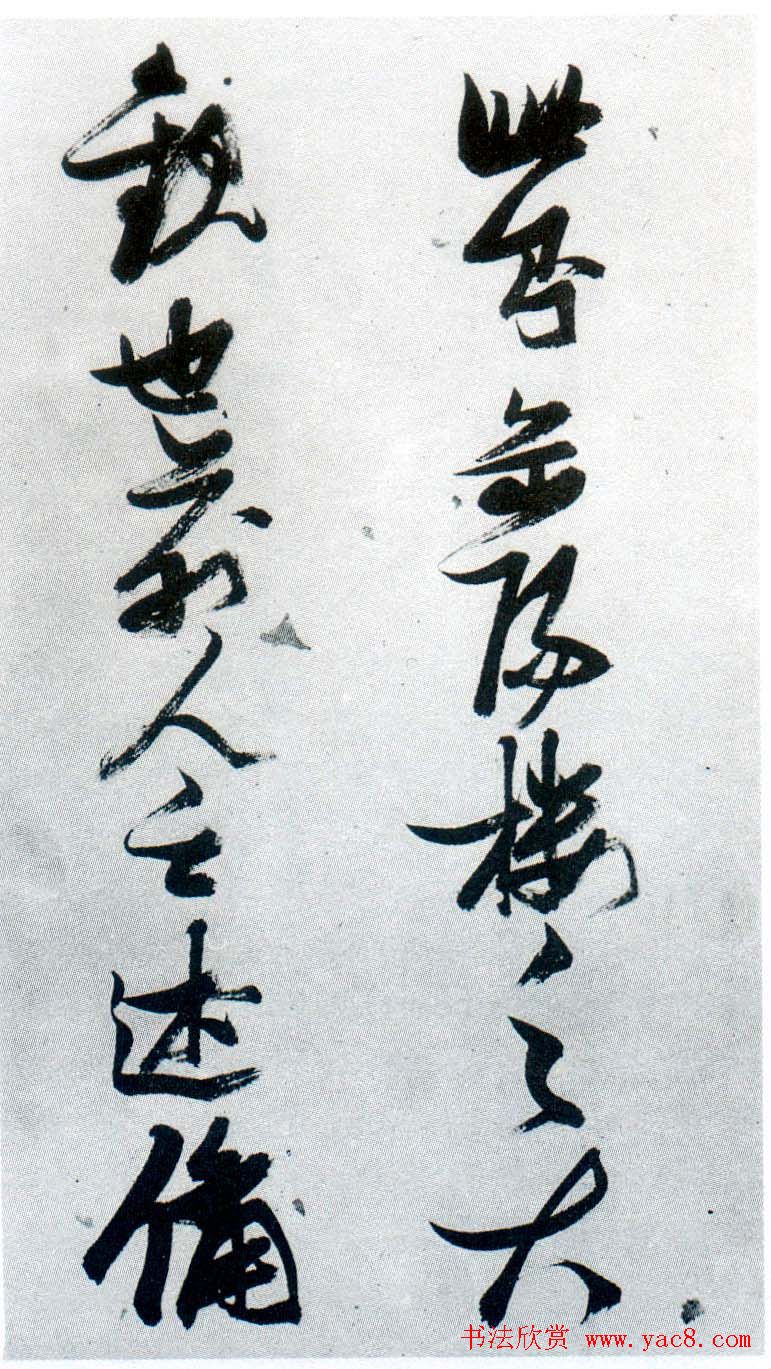 此則岳陽樓之大
觀也前人之述備
书法欣赏 www.yac8.com